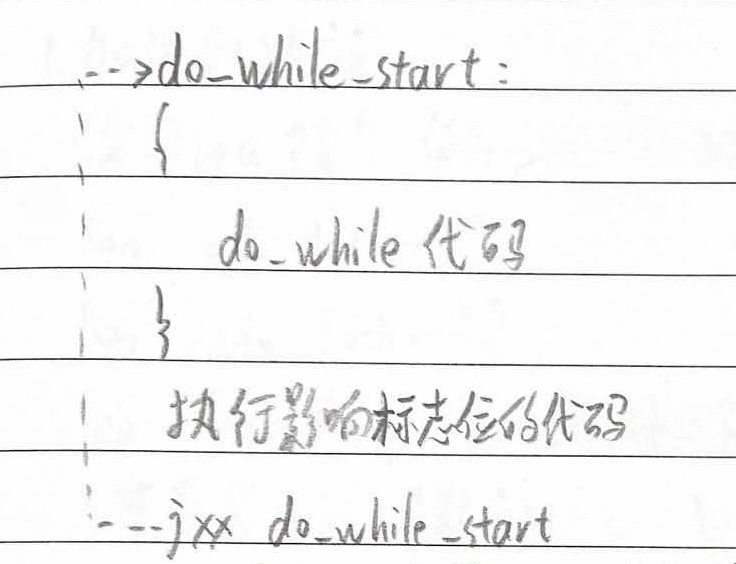 -->do_while_start:
{
do_while 代码
}
执行影响标志位的代码
---jxx do_while_start